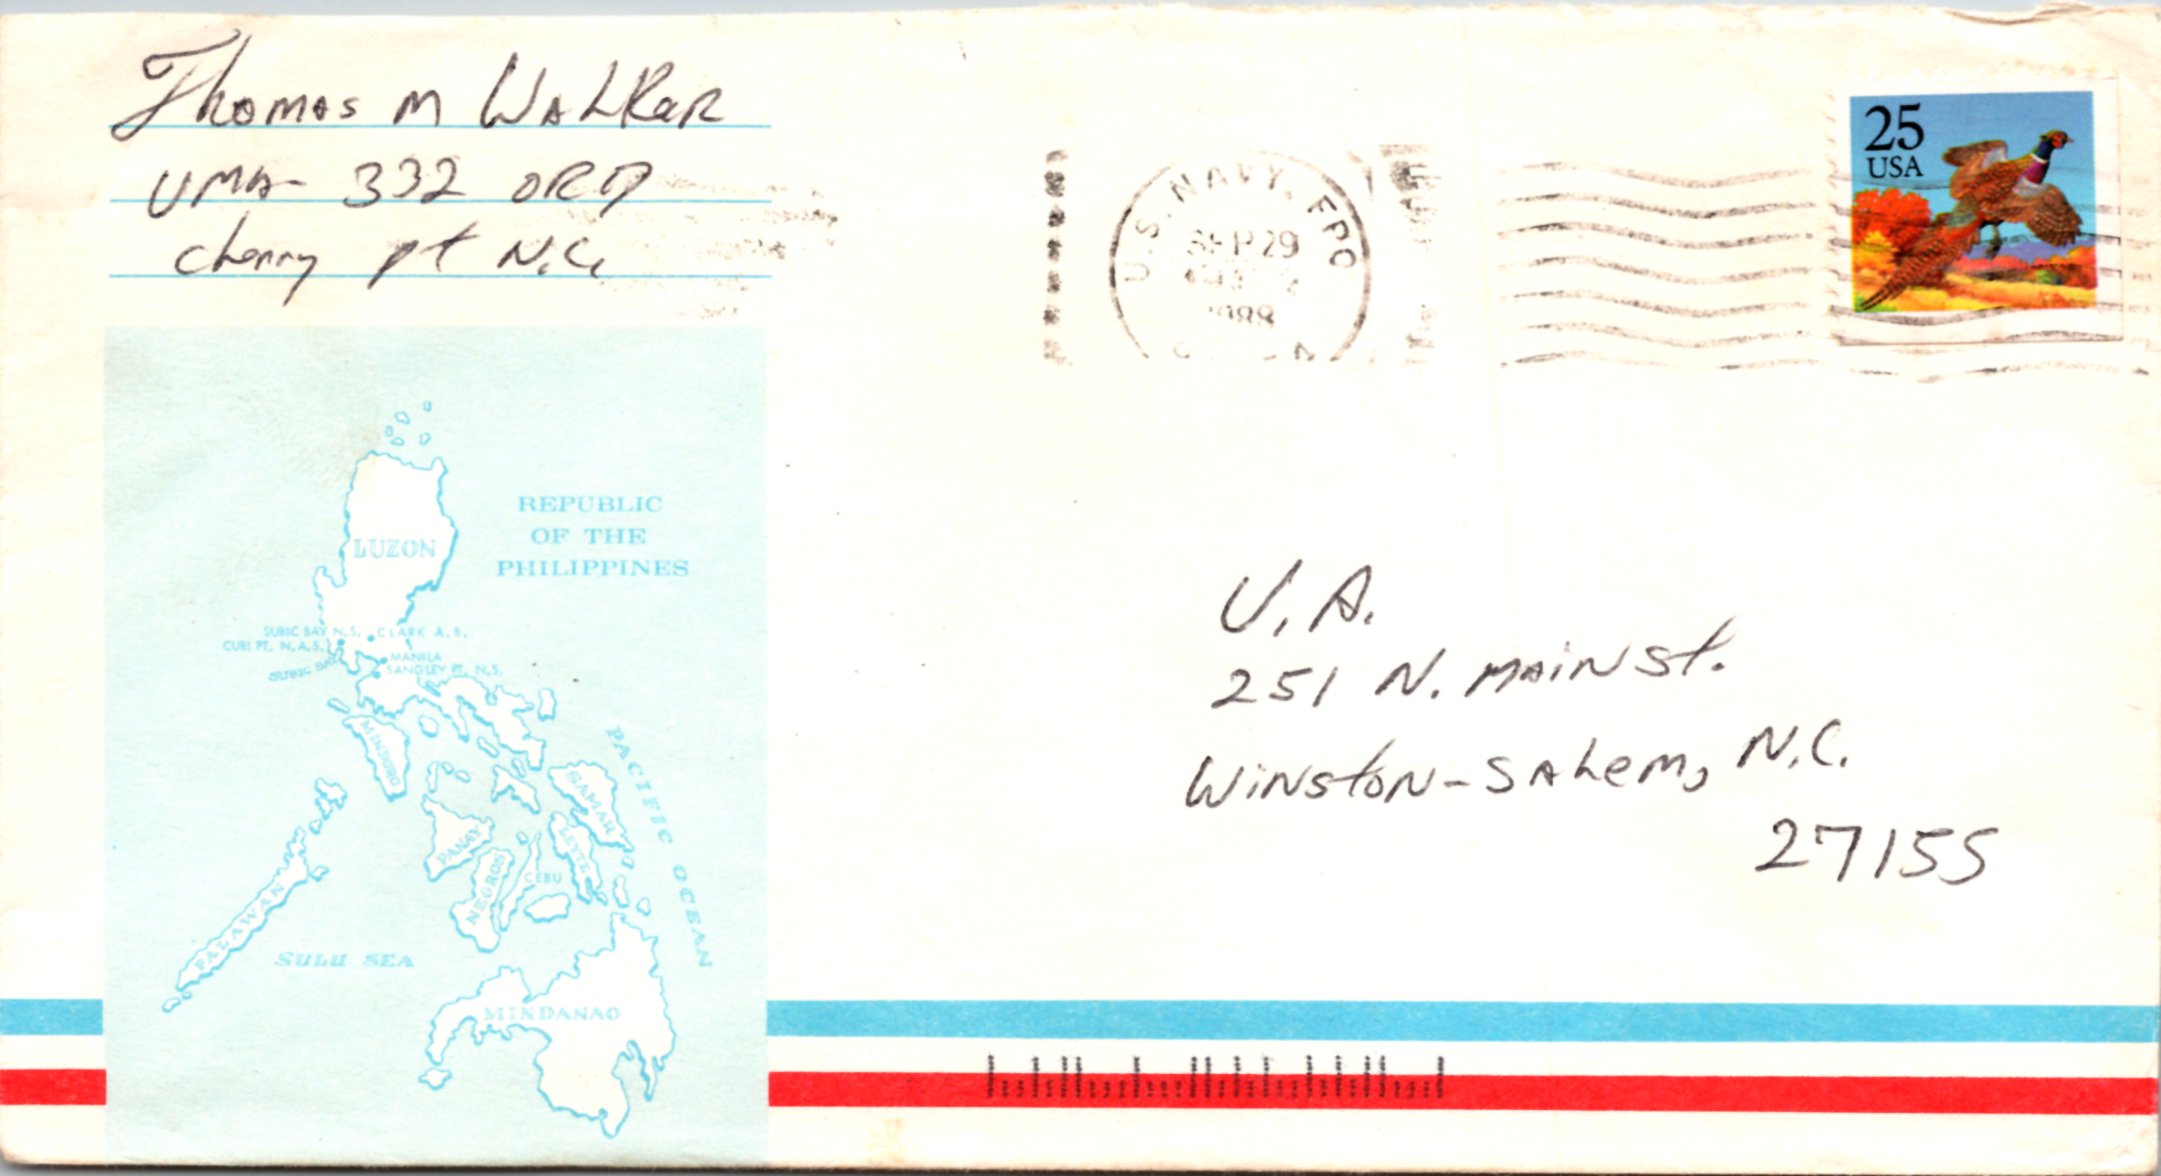 Thomas M Walker
VMA- 332 ORD
Cherry pt N.C.
U.S. NAVY, FPO
SEP 29
1988
25
USA
REPUBLIC
OF THE
PHILIPPINES
LUZON
SUBIC BAY N.S.
CLARK A. B.
CUBI PT. N.A.S.
MANILA
SUBIC BAY
SANGLEY PT. N.S.
MINDORO
SAMAR
PACIFIC OCEAN
PANAY
LEYTE
NEGROS
CEBU
PALAWAN
SULU SEA
MINDANAO
V.A.
251 N. MAIN St.
WiNstoN-SALem, N.C.
27155